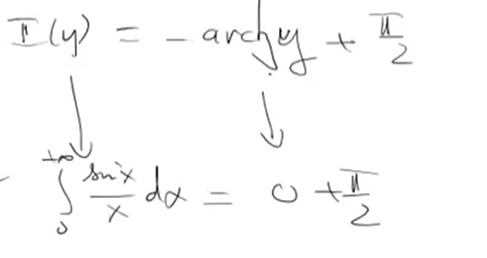 I(y) = - arctg y + π/2
∫₀^{+∞} sin x / x dx = 0 + π/2